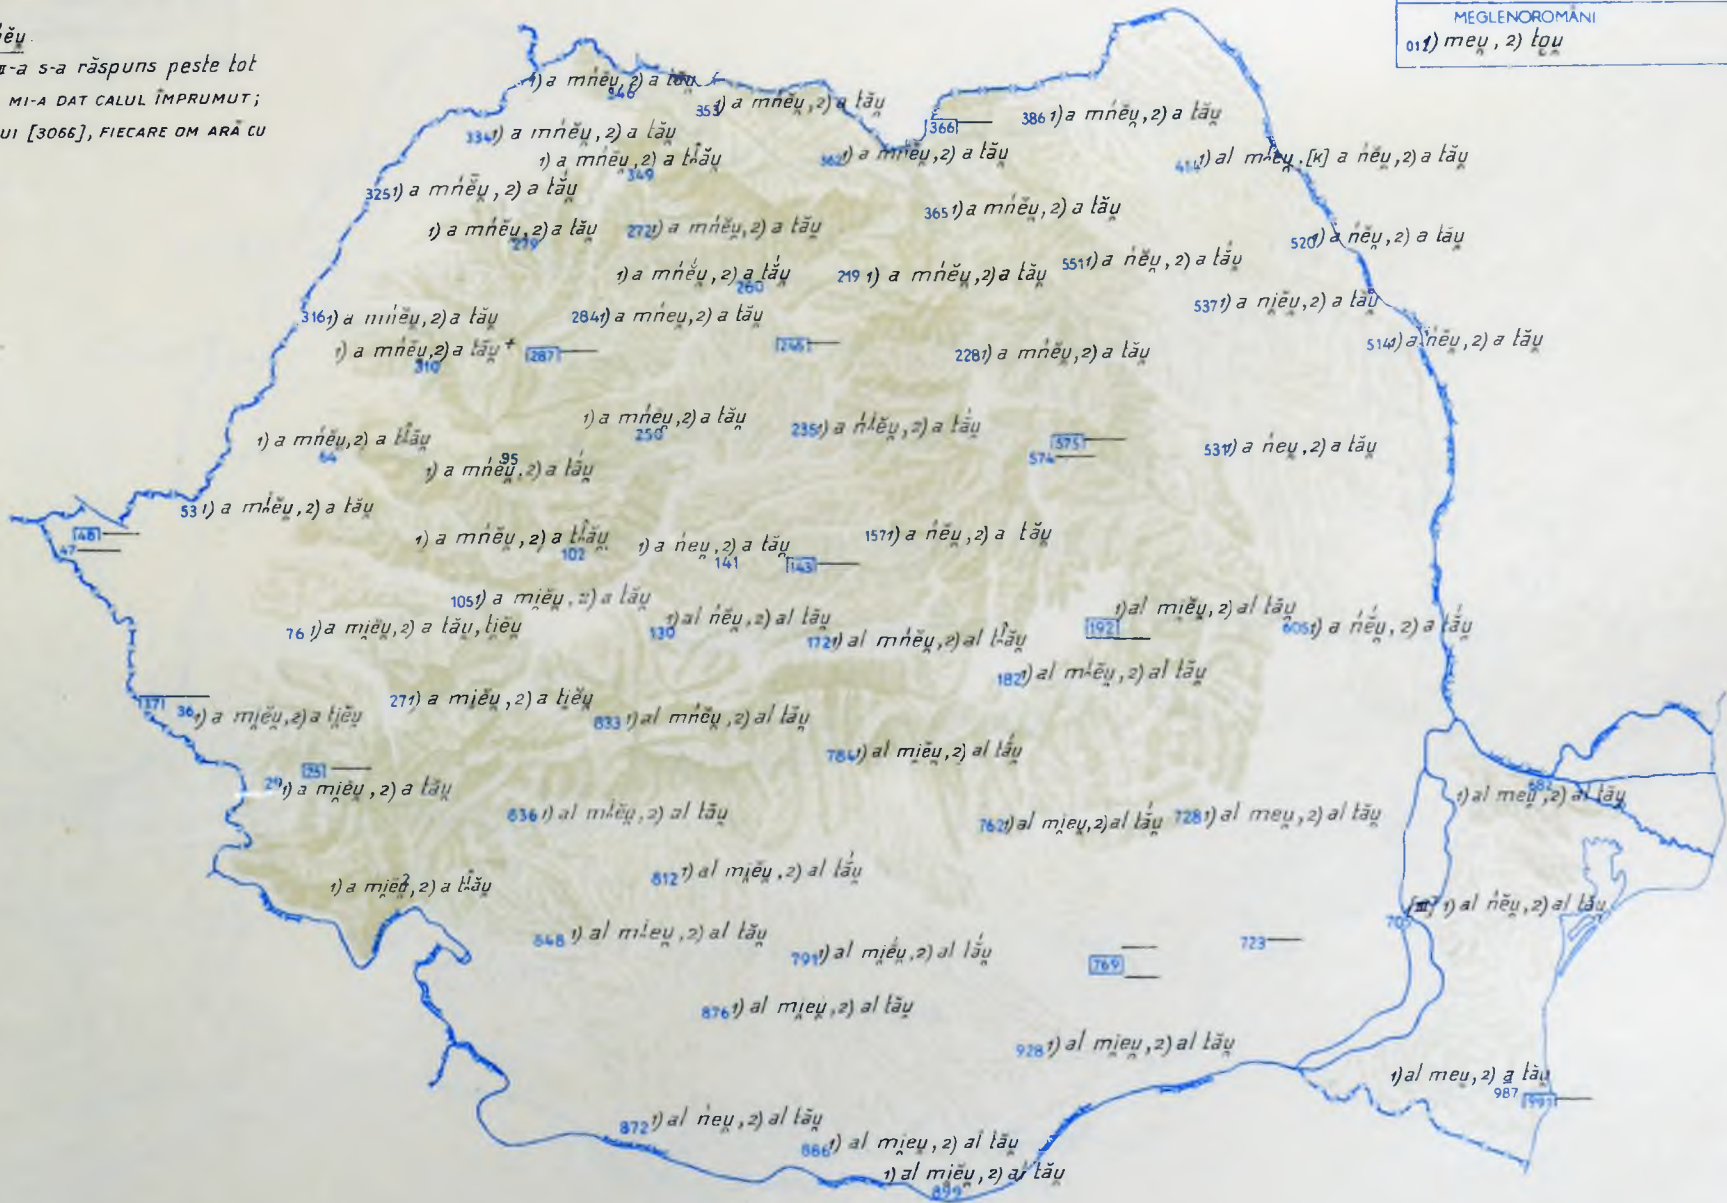 ĕu̯.
-a s-a răspuns peste tot
MI-A DAT CALUL ÎMPRUMUT;
UI [3066], FIECARE OM ARĂ CU
MEGLENOROMÂNI
012 1) meu̯, 2) tou̯
346 1) a mńĕu̯, 2) a tău̯
353 1) a mńĕu̯, 2) a tău̯
366 —
386 1) a mńĕu̯, 2) a tău̯
334 1) a mńĕu̯, 2) a tău̯
349 1) a mńĕu̯, 2) a tău̯
362 1) a mńĕu̯, 2) a tău̯
414 1) al mńeu̯, [K] a ńĕu̯, 2) a tău̯
325 1) a mńĕu̯, 2) a tắu̯
365 1) a mńĕu̯, 2) a tău̯
279 1) a mńĕu̯, 2) a tău̯
272 1) a mńĕu̯, 2) a tău̯
520 1) a ńĕu̯, 2) a tău̯
260 1) a mńĕu̯, 2) a tắu̯
219 1) a mńĕu̯, 2) a tău̯
551 1) a ńĕu̯, 2) a tắu̯
537 1) a ni̯ĕu̯, 2) a tău̯
316 1) a mńĕu̯, 2) a tău̯
284 1) a mńeu̯, 2) a tău̯
310 1) a mńĕu̯, 2) a tău̯ +
287 —
246 —
228 1) a mńĕu̯, 2) a tău̯
514 1) a ńĕu̯, 2) a tău̯
64 1) a mńĕu̯, 2) a tău̯
250 1) a mńĕu̯, 2) a tău̯
235 1) a ńĕu̯, 2) a tắu̯
575 —
574 —
531 1) a ńeu̯, 2) a tău̯
95 1) a mńĕu̯, 2) a tắu̯
53 1) a mńĕu̯, 2) a tău̯
48 —
47 —
102 1) a mńĕu̯, 2) a tău̯
141 1) a ńeu̯, 2) a tău̯
143 —
157 1) a ńĕu̯, 2) a tău̯
105 1) a mi̯ĕu̯, 2) a tău̯
76 1) a mi̯ĕu̯, 2) a tău̯, ti̯ĕu̯
130 1) al ńĕu̯, 2) al tău̯
172 1) al mńĕu̯, 2) al tău̯
192 1) al mi̯ĕu̯, 2) al tău̯
—
605 1) a ńĕu̯, 2) a tắu̯
182 1) al mńĕu̯, 2) al tău̯
37 —
36 1) a mi̯ĕu̯, 2) a ti̯ĕu̯
27 1) a mi̯ĕu̯, 2) a ti̯ĕu̯
833 1) al mńĕu̯, 2) al tău̯
784 1) al mi̯ĕu̯, 2) al tắu̯
25 —
29 1) a mi̯ĕu̯, 2) a tău̯
836 1) al mńĕu̯, 2) al tău̯
762 1) al mi̯eu̯, 2) al tắu̯
728 1) al meu̯, 2) al tău̯
682 1) al meu̯, 2) al tău̯
1) a mi̯ĕu̯, 2) a tău̯
812 1) al mi̯ĕu̯, 2) al tắu̯
705 [III] 1) al ńĕu̯, 2) al tău̯
848 1) al mńeu̯, 2) al tău̯
791 1) al mi̯ĕu̯, 2) al tắu̯
—
769 —
723 —
876 1) al mi̯eu̯, 2) al tău̯
928 1) al mi̯eu̯, 2) al tău̯
987 1) al meu, 2) a tău̯
991 —
872 1) al ńeu̯, 2) al tău̯
886 1) al mi̯eu̯, 2) al tău̯
899 1) al mi̯ĕu̯, 2) al tău̯